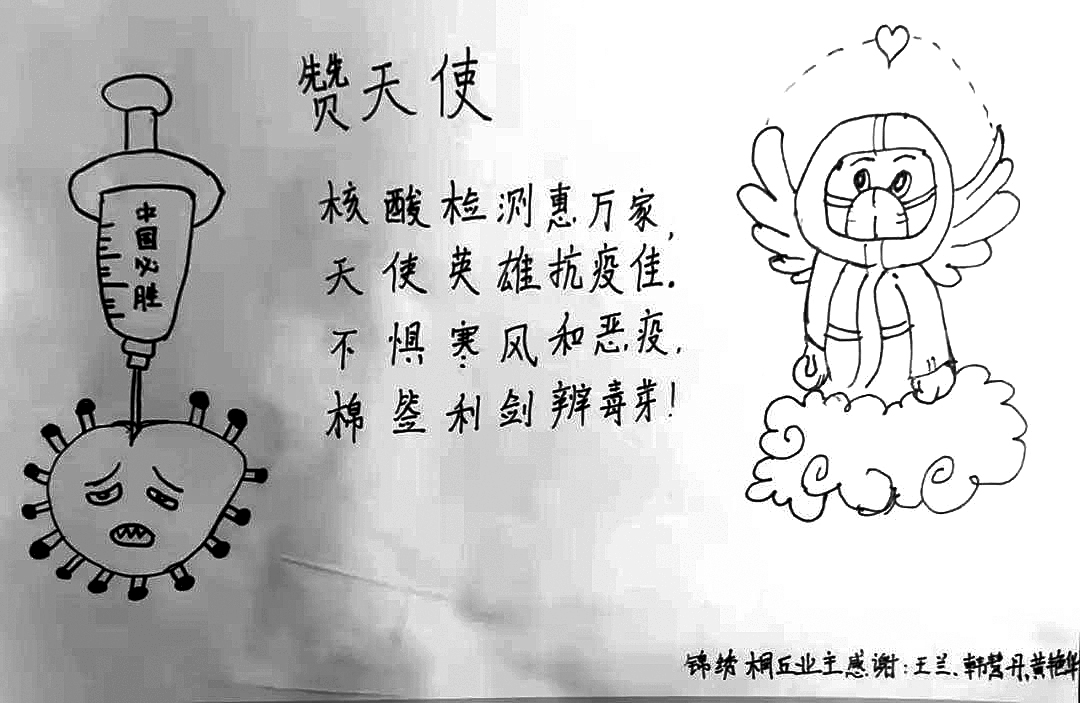 赞天使
核酸检测惠万家,
天使英雄抗疫佳.
不惧寒风和恶疫,
棉签利剑辨毒芽!
中国必胜
锦绣桐丘业主感谢:王兰.韩营丹,黄艳华